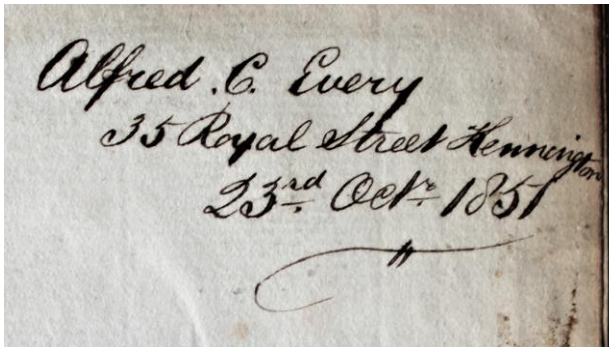 Alfred . C. Every
35 Royal Street Kennington
23rd Octr 1851